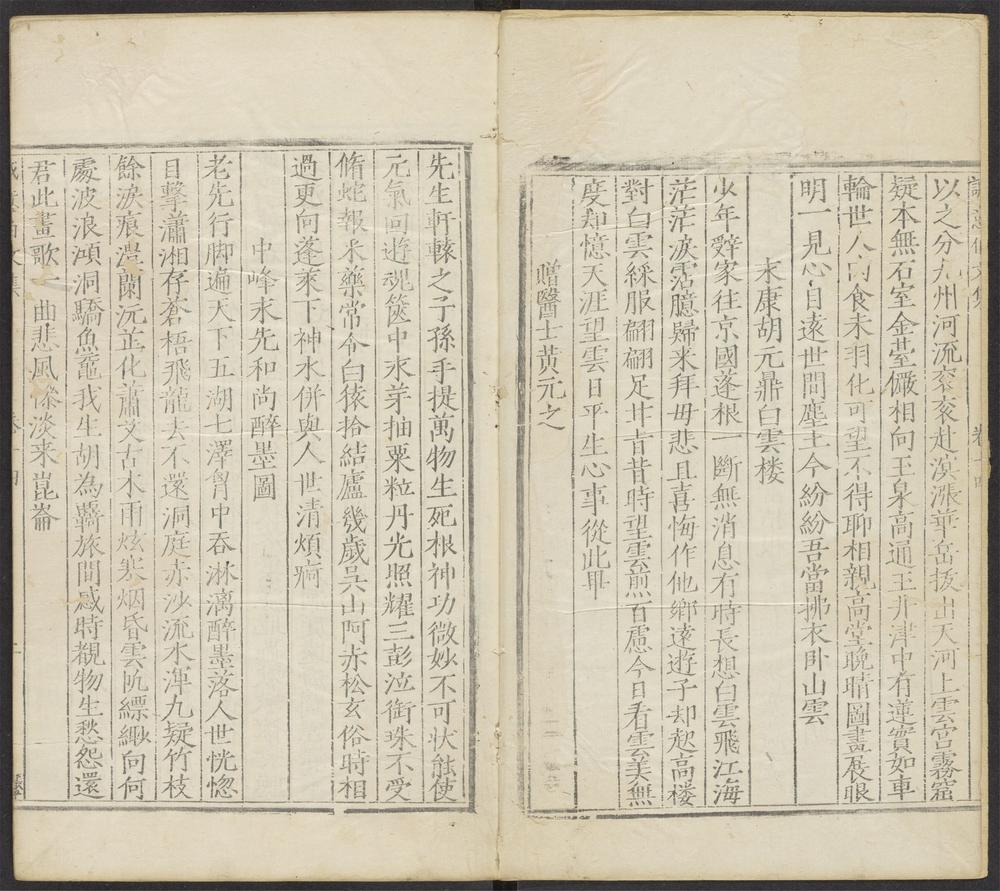 以之分九州河流衮衮赴溟漲華岳拔出天河上雲宫霧窟
疑本無石室金莖儼相向玉泉高通玉井津中有蓮實如車
輪世人肉食未羽化可望不得聊相親高堂晚晴圖畫展眼
明一見心自遠世間塵土今紛紛吾當拂衣卧山雲
永康胡元鼎白雲楼
少年辤家往京國蓬根一斷無消息有時長想白雲飛江海
茫茫淚霑臆歸来拜母悲且喜悔作他鄉遠逰子却起高楼
對白雲綵服翩翩足甘旨昔時望雲煎百慮今日看雲美無
度却憶天涯望雲日平生心事從此畢
贈醫士黄元之
先生軒轅之子孫手提萬物生死根神功微妙不可状能使
元氣回逰魂篋中求芽抽粟粒丹光照耀三彭泣銜珠不受
脩蛇報采藥常令白猿拾結廬幾歲吳山阿赤松玄俗時相
過更向蓬萊下神水併與人世清煩痾
中峰末先和尚醉墨圖
老先行脚遍天下五湖七澤胷中吞淋漓醉墨落人世恍惚
目擊瀟湘存蒼梧飛龍去不還洞庭赤沙流水渾九疑竹枝
餘淚痕澧蘭沅芷化蕭艾古木雨炫寒烟昏雲帆縹緲向何
處波浪澒洞驕魚黿我生胡為羈旅間感時覩物生愁怨還
君此畫歌一曲悲風慘淡来崑崙